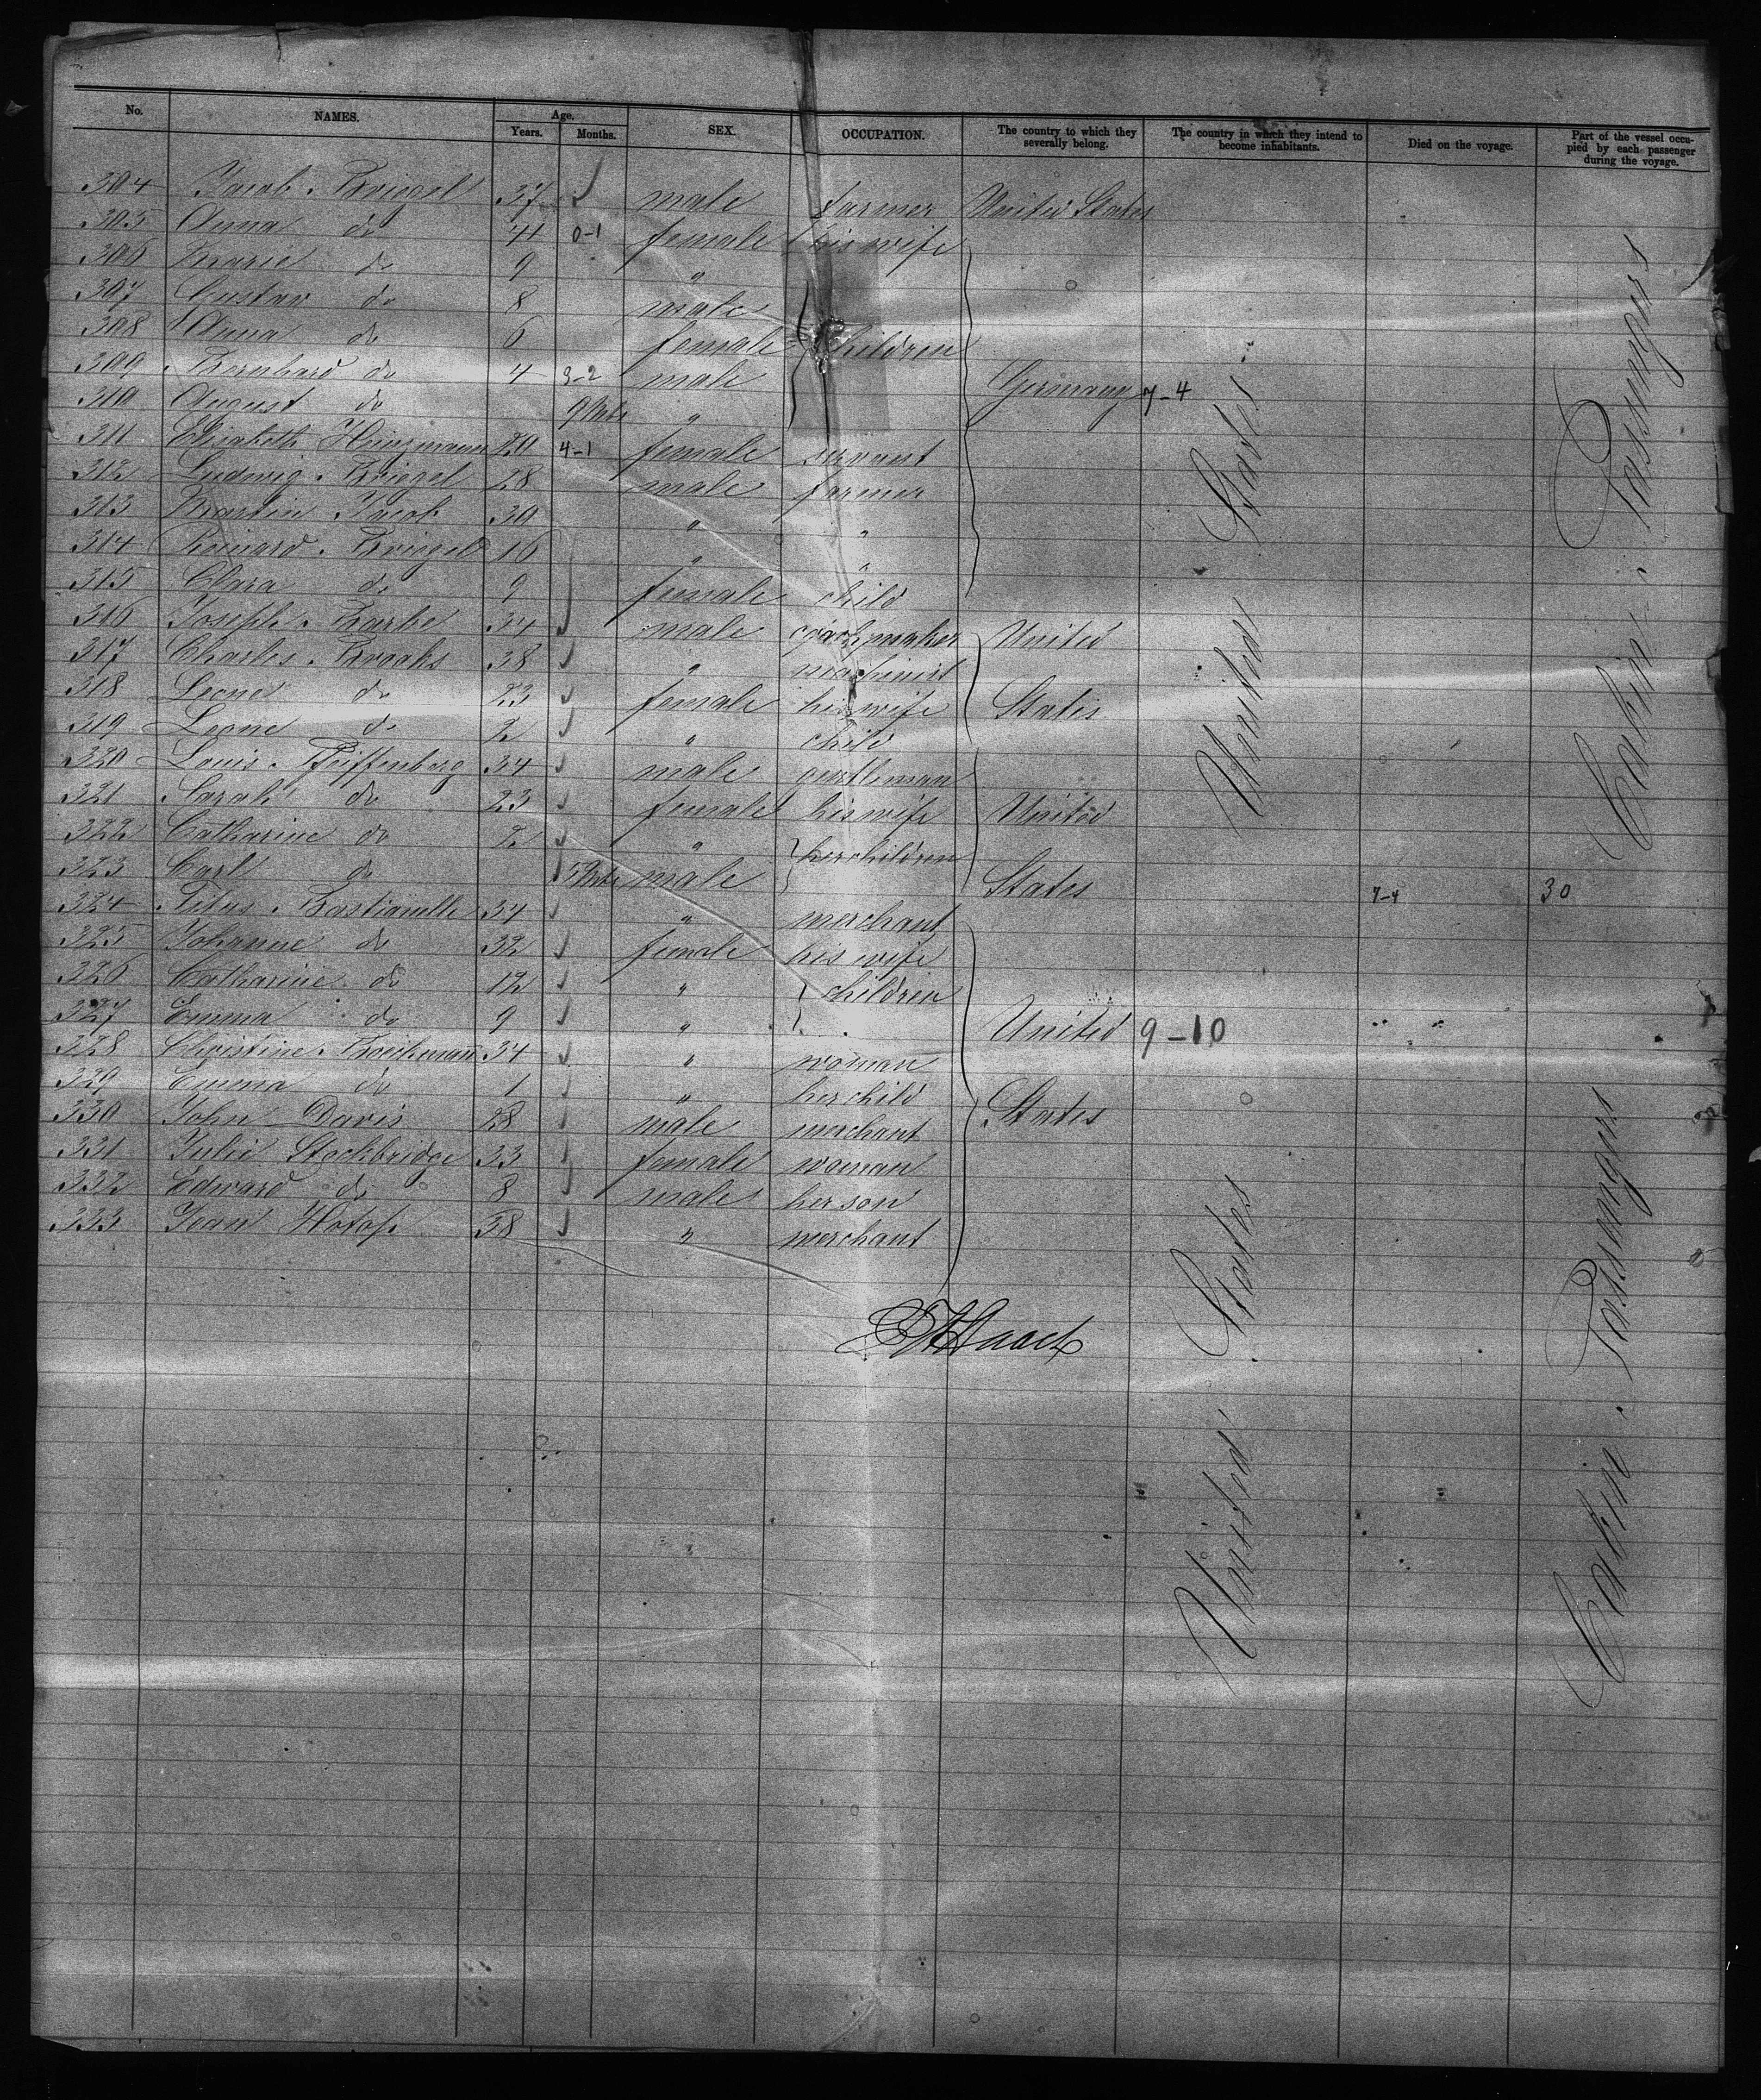 No. NAMES. Age. Years. Months. SEX. OCCUPATION. The country to which they severally belong. The country in which they intend to become inhabitants. Died on the voyage. Part of the vessel occupied by each passenger during the voyage.
304 Jacob 37 male farmer United States
305 Anna do 41 0-1 female his wife
306 Marie do 9 "
307 Gustav do 8 male
308 Anna do 6 female children
309 Bernhard do 4 3-2 male Germany 7-4
310 August do 9 Mts "
311 Elisabeth Heinzmann 20 4-1 female servant
312 Ludwig 28 male farmer
313 Martin Jacob 30 " "
314 16 " "
315 Clara do 9 female child
316 Joseph 34 male coachmaker United
317 Charles Brooks 38 " machinist
318 Leone do 23 female his wife States
319 Leone do 2 " child
320 Louis Pfeiffenberg 34 male gentleman
321 Sarah do 23 female his wife United
322 Catharine do 2 " her children
323 Carl do male States 7-4 30
324 Titus 34 " merchant
325 Johanne do 32 female his wife
326 Catharine do 12 " children
327 Emma do 9 " United 9-10
328 Christine 34 " woman
329 Emma do 1 " her child
330 John Davis 28 male merchant States
331 Julie Stockbridge 33 female woman
332 Edward do 8 male her son
333 Jean Hotop 38 " merchant
United States
United States
Cabin Passengers
Cabin Passengers